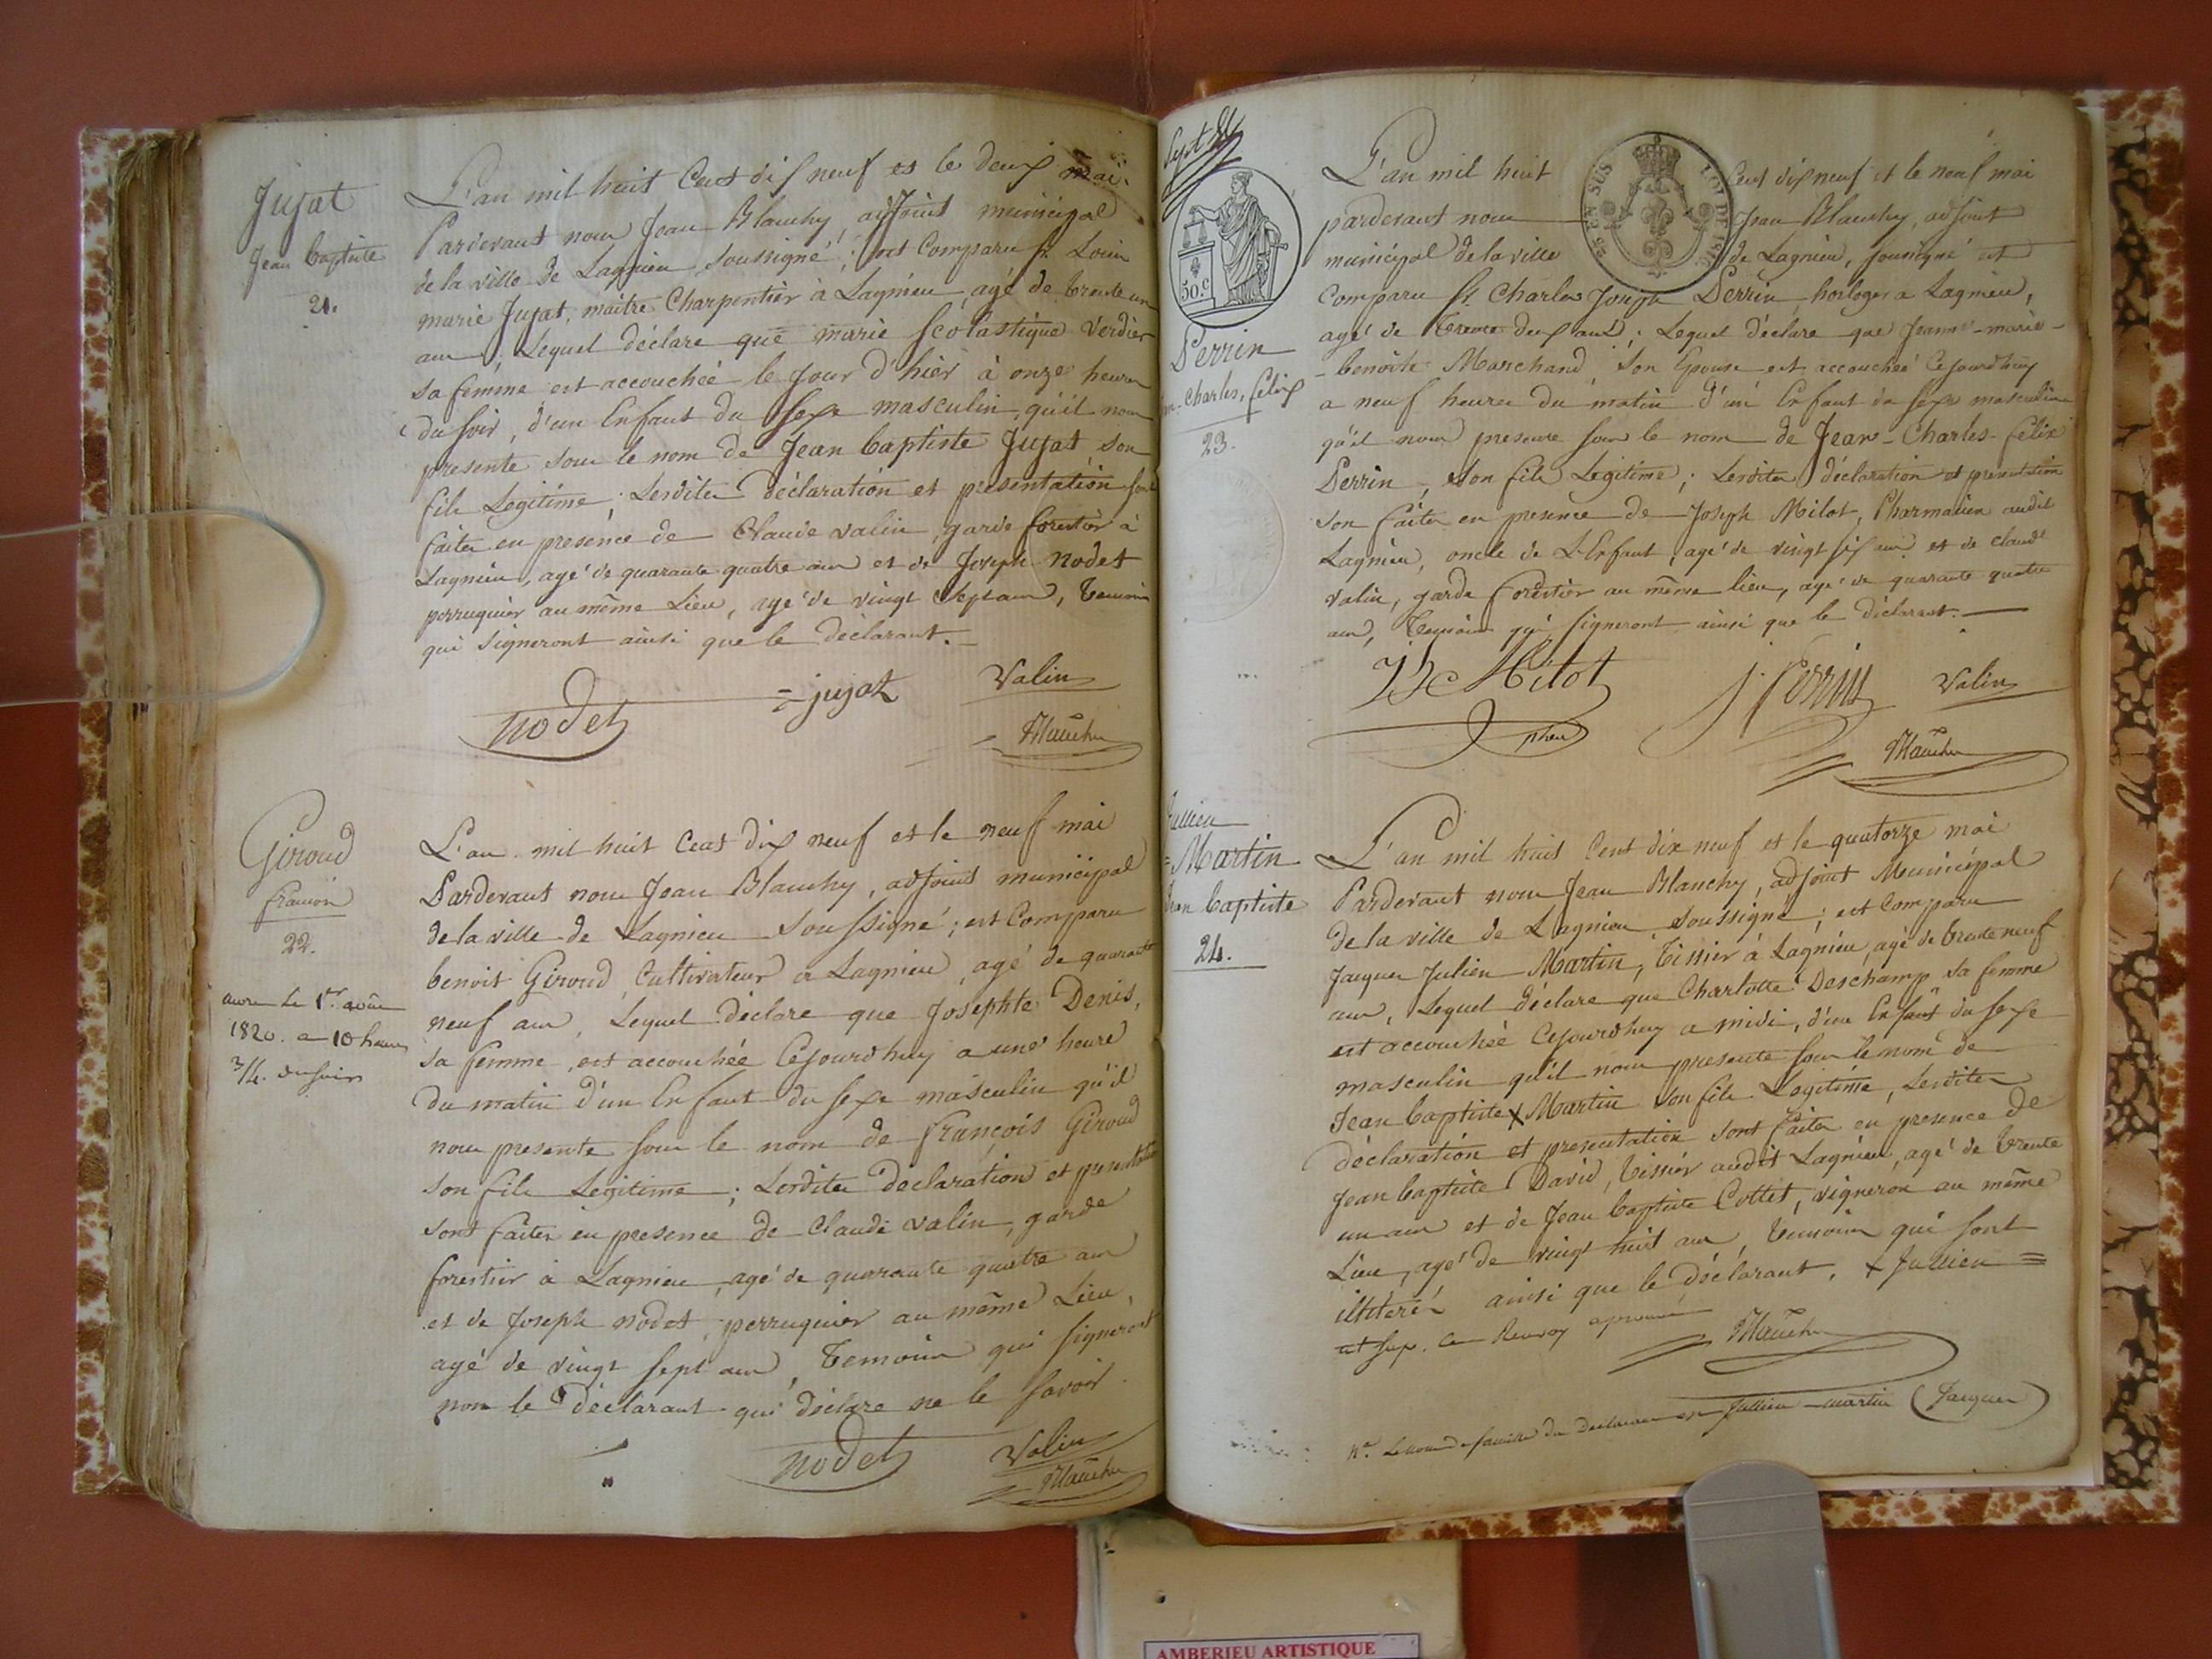 Jujat
Jean Baptiste
21.
L'an mil huit Cent dix neuf et le deux mai.
Pardevant nous Jean Blanchy, adjoint municipal
de la ville de Lagnieu, soussigné; est Comparu Sr. Louis
marie Jujat, maitre Charpentier à Lagnieu, agé de trente un
ans; Lequel déclare que marie Scolastique Verdier
sa femme est accouchée le Jour d'hier à onze heures
du soir, d'un Enfant du sexe masculin, qu'il nous
presente sous le nom de Jean Baptiste Jujat, son
fils Legitime; Lesdites déclaration et presentation sont
faites en presence de Claude Valin, garde forestier à
Lagnieu, agé de quarante quatre ans et de Joseph Nodet
perruquier au même Lieu, agé de vingt Sept ans, temoins
qui signeront ainsi que le déclarant.
nodet
= jujat
Valin
Blanchy
Giroud
françois
22.
1er. août
1820. a 10 heures
3/4. du soir
L'an mil huit Cent dix neuf et le neuf mai
Pardevant nous Jean Blanchy, adjoint municipal
de la ville de Lagnieu soussigné; est Comparu
benoit Giroud, Cultivateur a Lagnieu, agé de quarante
neuf ans, Lequel déclare que Joséphte Denis,
sa femme, est accouchée Cejourdhuy a une heure
du matin d'un Enfant du sexe masculin qu'il
nous presente sous le nom de françois Giroud
son fils Legitime; Lesdites declaration et presentation
sont faites en presence de Claude Valin, garde
forestier a Lagnieu, agé de quarante quatre ans
et de Joseph Nodet, perruquier au même Lieu,
agé de vingt sept ans, temoins qui signeront
non le déclarant qui déclare ne le savoir
nodet
Valin
Blanchy
Sept
50.c
Perrin
Charles, félix
23.
25 CEN SUS
LOI DE 1816
L'an mil huit Cent dix neuf et le neuf mai
pardevant nous Jean Blanchy, adjoint
municipal de la ville de Lagnieu, soussigné est
Comparu Sr. Charles Joseph Perrin horloger a Lagnieu,
agé de trente deux ans; Lequel déclare que Jeanne-marie-
-benoite Marchand, Son Epouse est accouchée Cejourdhuy
a neuf heures du matin d'un Enfant du sexe masculin
qu'il nous presente sous le nom de Jean-Charles-felix
Perrin, Son fils Legitime; Lesdites déclaration et presentation
son faites en presence de Joseph Milot, Pharmacien audit
Lagnieu, oncle de L'Enfant, agé de vingt six ans et de claude
valin, garde forestier au même lieu, agé de quarante quatre
ans, temoins qui signeront ainsi que le déclarant.
Milot
phen
j. Perrin
Valin
Blanchy
Jullien
= Martin
Jean baptiste
24.
L'an mil huit Cent dix neuf et le quatorze mai
Pardevant nous Jean Blanchy, adjoint Municipal
de la ville de Lagnieu soussigné; est Comparu
Jacques Julien Martin, tissier à Lagnieu, agé de trente neuf
ans, Lequel déclare que Charlotte Deschamp sa femme
est accouchée Cejourdhuy a midi, d'un Enfant du sexe
masculin qu'il nous presente sous le nom de
Jean baptiste X Martin son fils Legitime, Lesdites
déclaration et presentation sont faites en presence de
Jean baptiste David, tissier audit Lagnieu, agé de trente
un ans et de Jean baptiste Cottet, vigneron au même
Lieu, agé de vingt huit ans, temoins qui sont
illiterés ainsi que le déclarant. X Jullien =
ut sup. Ce Renvoy aprouvé
Blanchy
Na. Le nom de famille du declarant est Jullien-martin (Jacques)
AMBERIEU ARTISTIQUE